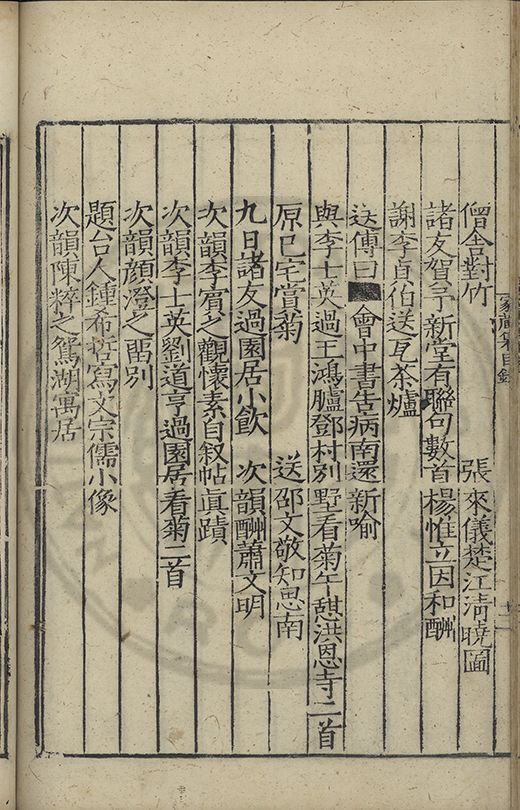 家藏集目錄
僧舍對竹　張來儀楚江清曉圖
諸友賀予新堂有聯句數首楊惟立因和酬
謝李貞伯送瓦茶爐
送傅曰會中書告病南還新喻
與李士英過王鴻臚鄧村別墅看菊午憇洪恩寺二首
原巳宅賞菊　送邵文敬知思南
九日諸友過園居小飲　次韻酬蕭文明
次韻李賓之觀懷素自叙帖眞蹟
次韻李士英劉道亨過園居看菊二首
次韻顔澄之畱別
題台人鍾希哲寫文宗儒小像
次韻陳粹之鴛湖寓居